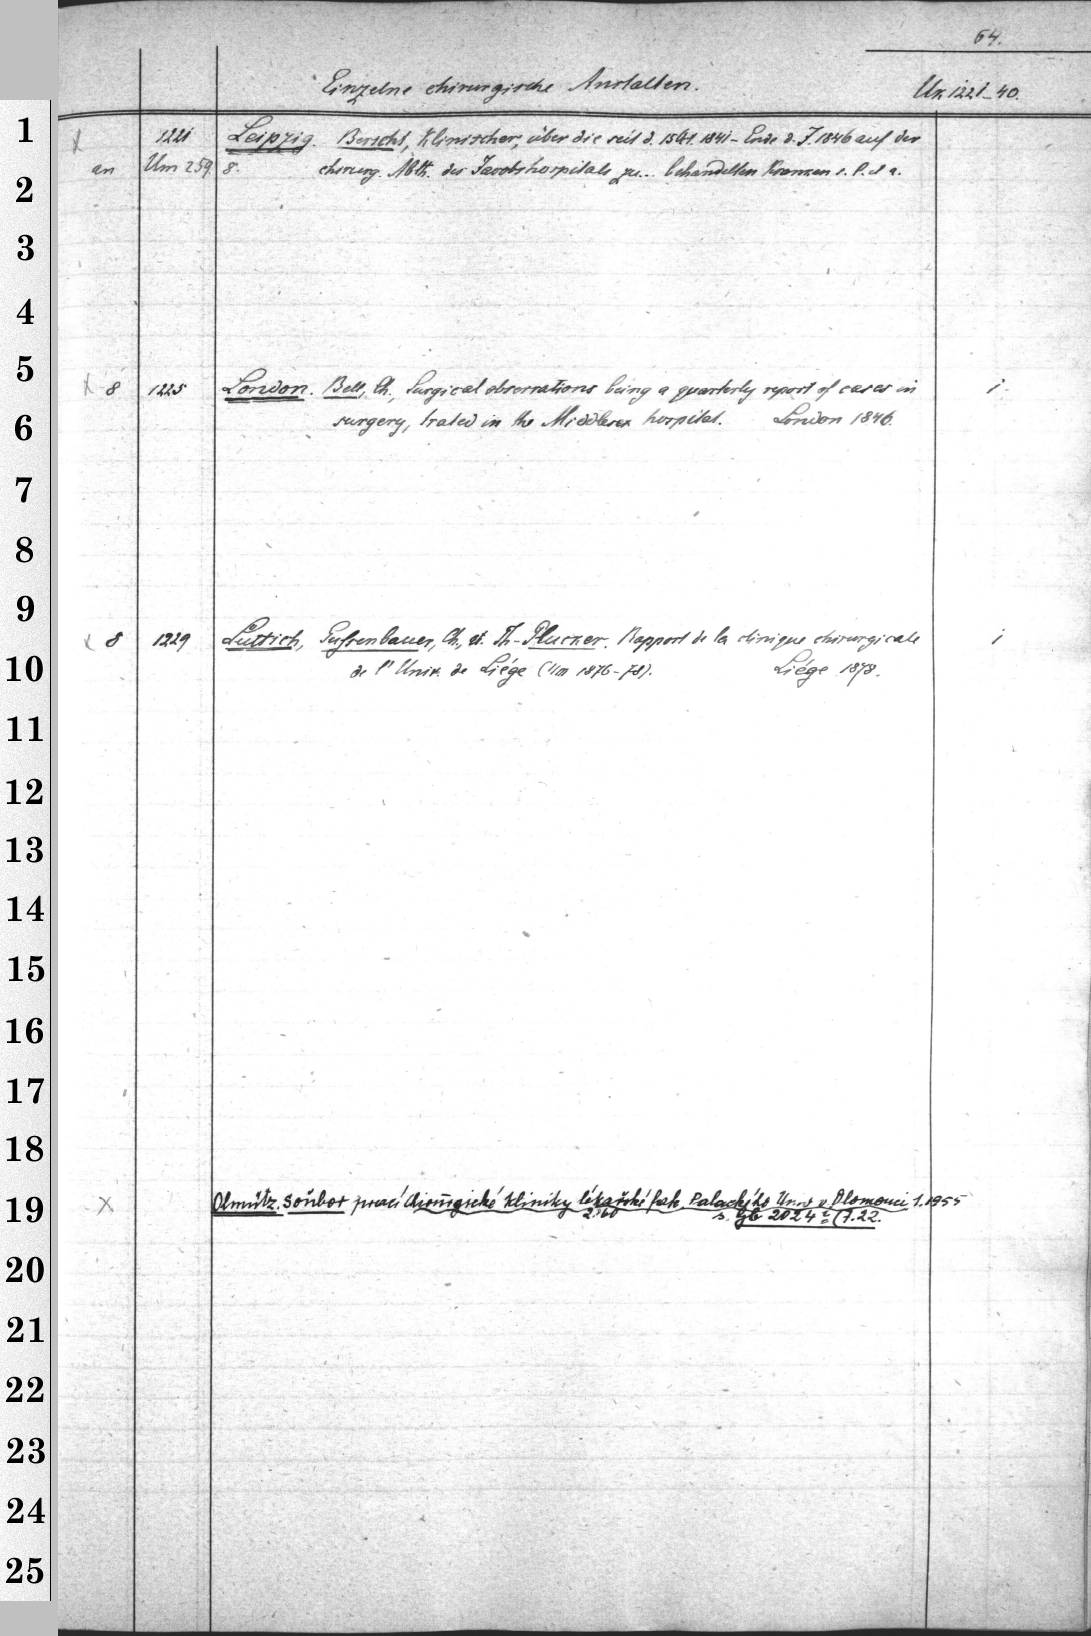 64.
Einzelne chirurgische Anstalten. Un 1221-40.
1 X 1221 Leipzig. Bericht, Klinischer, über die seit d. 15 Oct. 1841 - Ende d. J. 1846 auf der
2 an Um 259. 8. chirurg. Abth. des Jacobshospitals zu.. behandelten Kranken s. l. et a.
3
4
5 X 8 1225 London. Bell, Ch., Surgical observations being a quarterly report of cases in i
6 surgery, trated in the Middlesex hospital. London 1846.
7
8
9 x 8 1229 Lüttich, Ch., et Th. Plucker. Rapport de la clinique chirurgicale i
10 de l'Univ. de Liége (1876-78). Liége 1878.
11
12
13
14
15
16
17
18
19 X Olmütz. Soubor prací chirurgické kliniky lékařské fak. Palackého Univ v Olomouci 1.1955
s. 2024 (7.22.
20
21
22
23
24
25